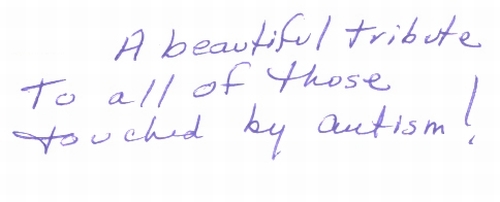 A beautiful tribute
To all of those
touched by autism!